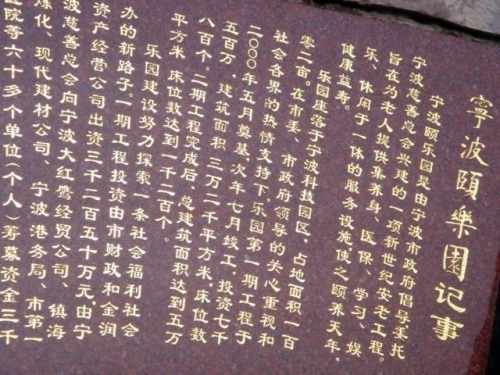 寧波頤樂園记事
宁波颐乐园是由宁波市政府倡导委托
宁波慈善总会兴建的一项新世纪安老工程。
旨在为老人提供集养身、医保、学习、娱
乐、休闲于一体的服务设施使之颐养天年，
健康益寿。
乐园座落于宁波科技园区，占地面积一百
零二亩。在市委、市政府领导的关心重视和
社会各界的热情支持下，乐园第一期工程于
二000年五月奠基，次年七月竣工，投资七千
五百万，建筑面积三万二千平方米，床位数
八百个。二期工程完成后，总建筑面积达到五万
平方米，床位数达到一千二百个。
乐园建设努力探索一条社会福利社会
办的新路子。一期工程投资由市财政和金润
资产经营公司出资三千二百五十万元，由宁
波慈善总会向宁波大红鹰经贸公司、镇海
炼化、现代建材公司、宁波港务局、市第一
医院等六十多个单位(个人)筹募资金三千